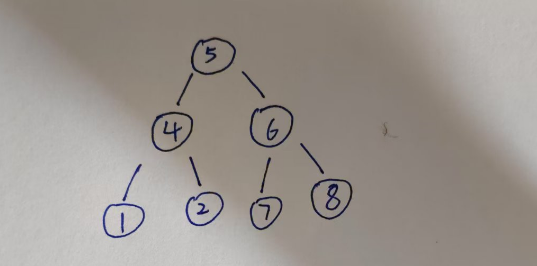 5
4 6
1 2 7 8